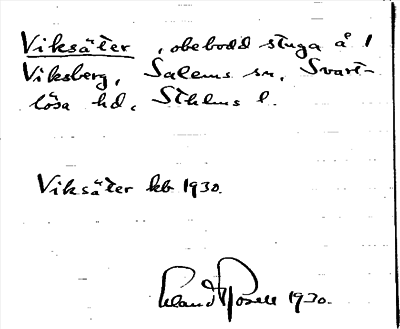 Viksäter, obebodd stuga å 1
Viksberg, Salems sn, Svart-
lösa hd, Sthlms l.
Viksäter kb 1930.
Erland Rosell 1930.